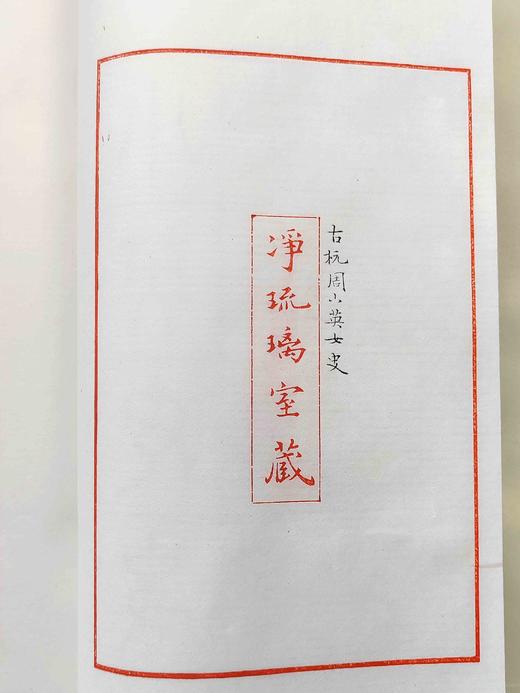 古杭周小英女史
淨琉璃室藏